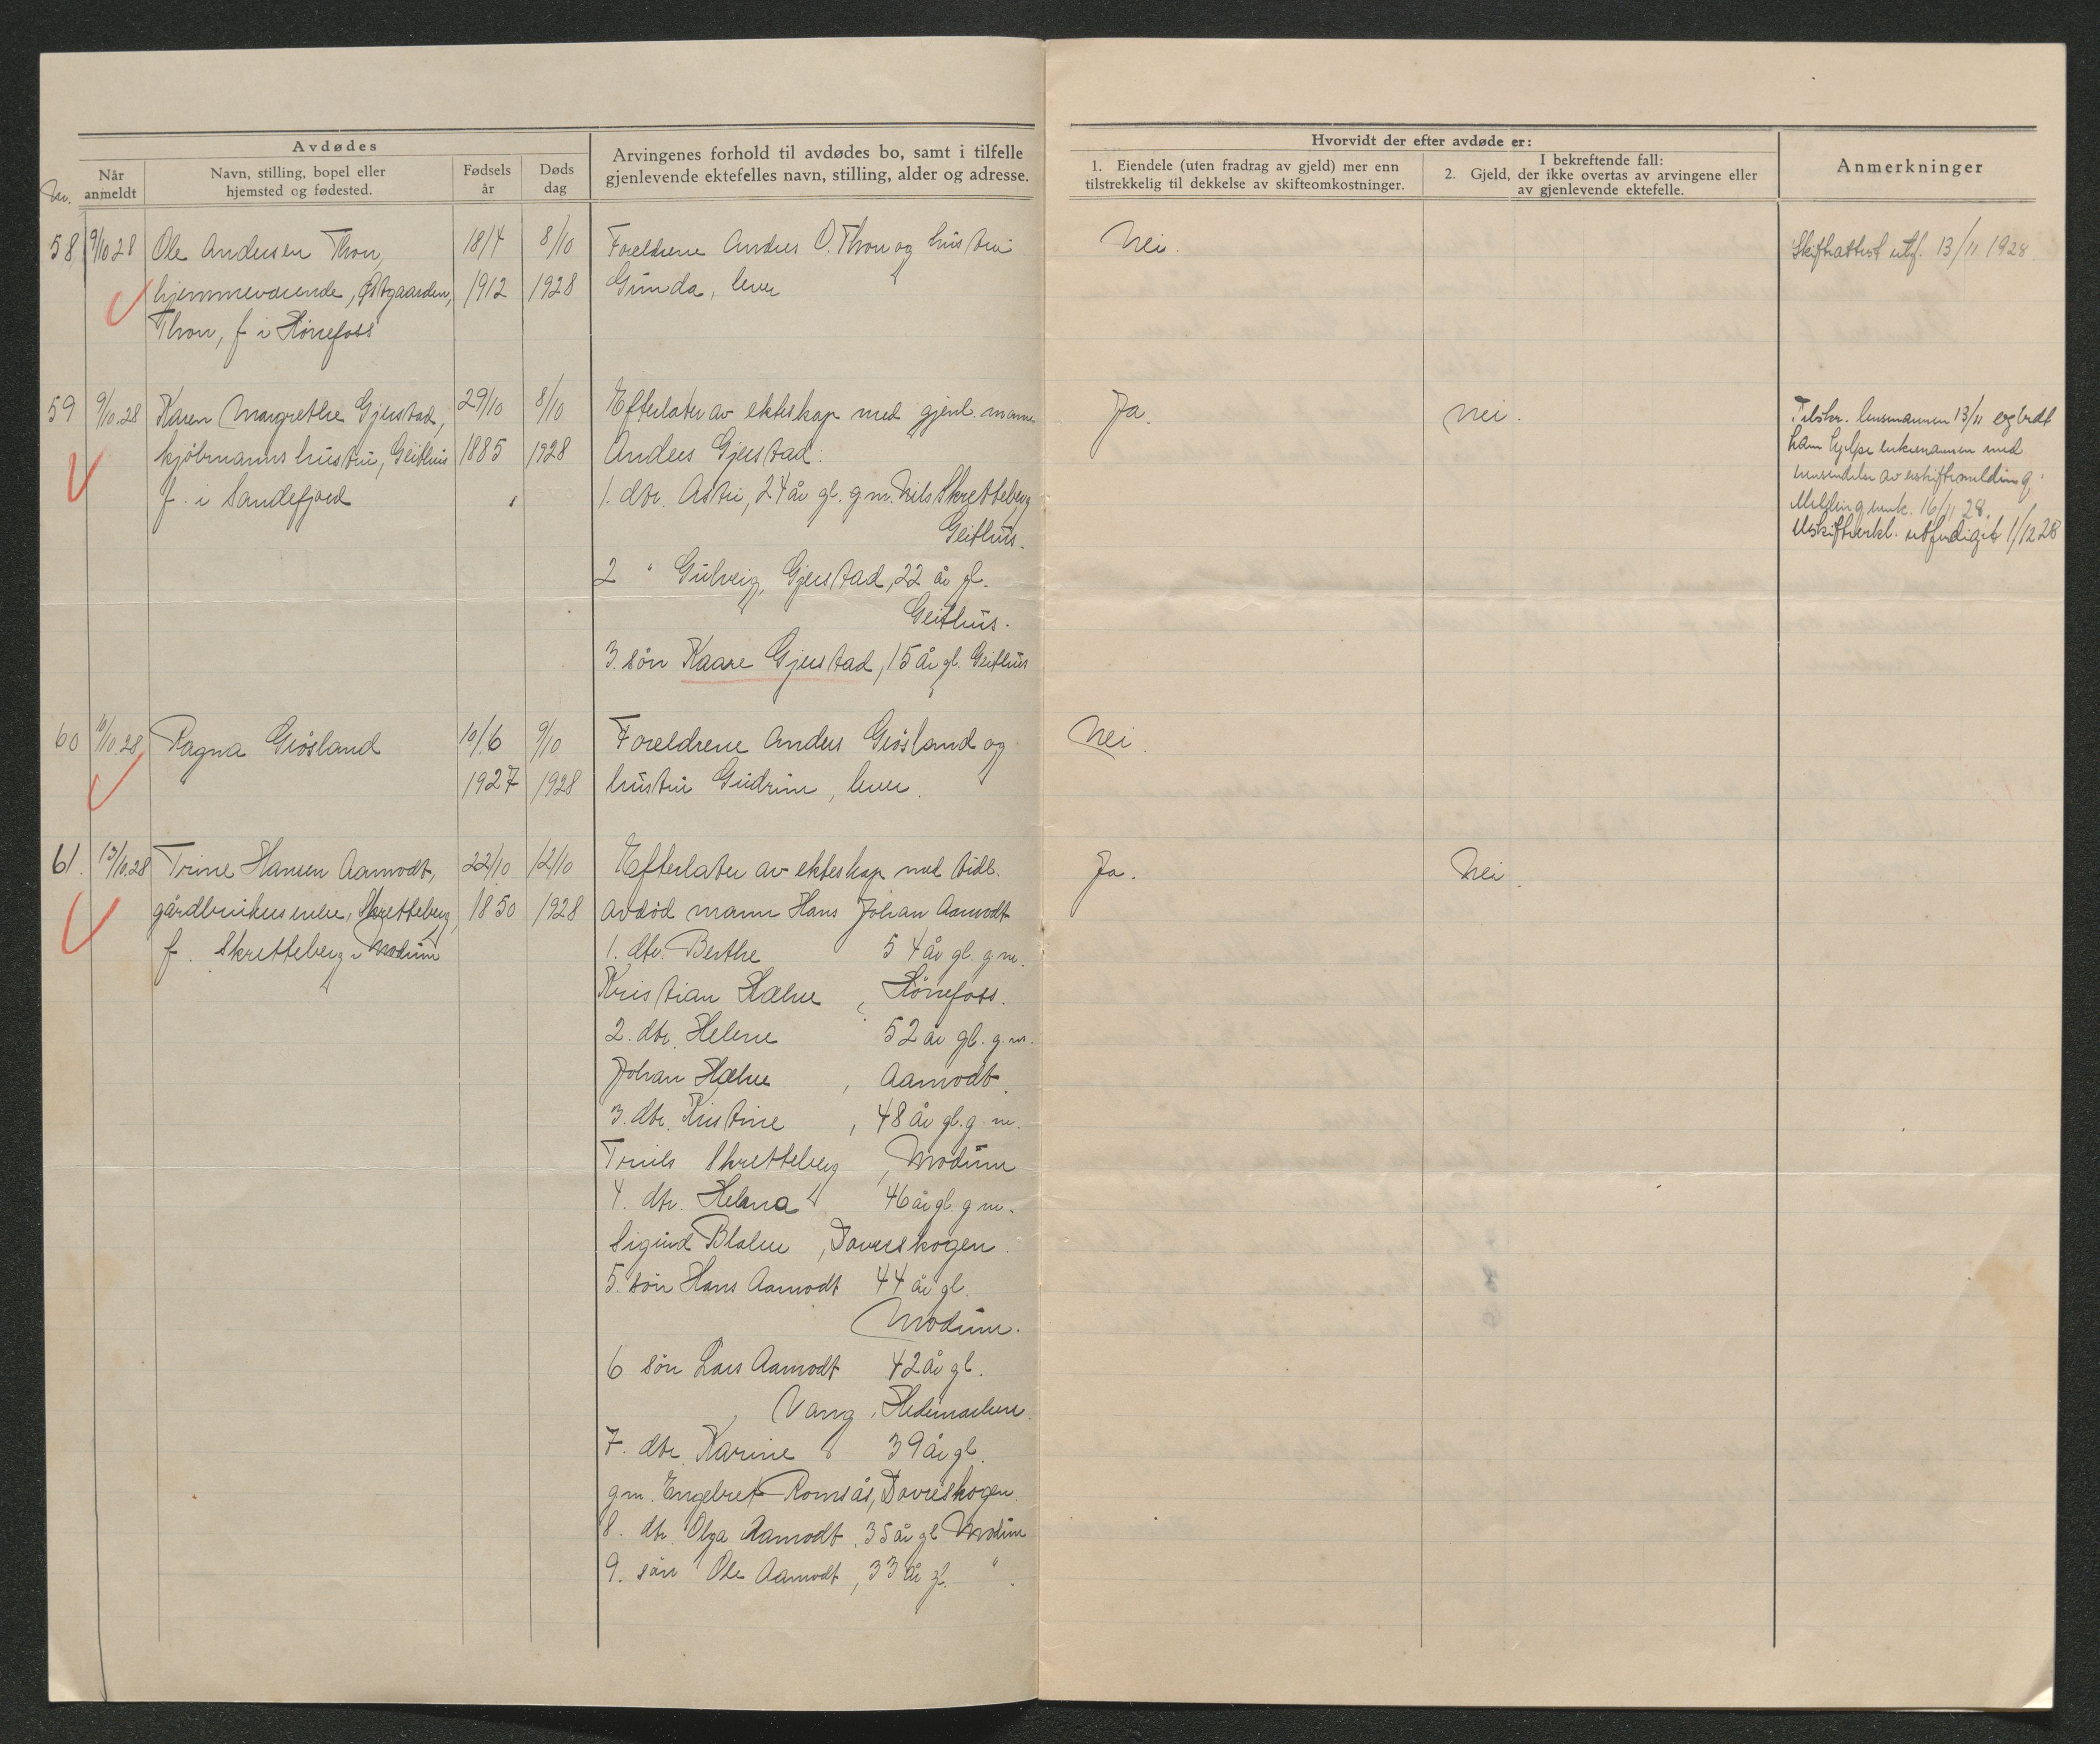 Avdødes
Nr.
Når anmeldt
Navn, stilling, bopel eller
hjemsted og fødested.
Fødsels
år
Døds
dag
Arvingenes forhold til avdødes bo, samt i tilfelle
gjenlevende ektefelles navn, stilling, alder og adresse.
Hvorvidt der efter avdøde er:
1. Eiendele (uten fradrag av gjeld) mer enn
tilstrekkelig til dekkelse av skifteomkostninger.
I bekreftende fall:
2. Gjeld, der ikke overtas av arvingene eller
av gjenlevende ektefelle.
Anmerkninger
58 9/10 28 Ole Andersen Thon, 18/4 8/10 Foreldrene Anders O. Thon og hustru Nei. Skifteattest utf. 13/11 1928.
hjemmeværende, Østgaarden, 1912 1928 Gunda, lever
Thon, f i Hønefoss
59 9/10.28 Karen Margrethe Gjerstad, 29/10 8/10 Efterlater av ekteskap med gjenl. mann Ja. Nei. Tilskr. lensmannen 13/11 og bedt
kjøbmanns hustru, Geithus 1885 1928 Anders Gjerstad. ham hjelpe enkemannen med
f. i Sandefjord 1. dtr. Astri, 24 år gl. g.m. Nils Skretteberg innsendelse av uskiftemelding.
Geithus. Melding innk. 16/11 28.
Uskifteerkl. utferdiget 1/12 28
2 " Gulveig, Gjerstad, 22 år gl.
Geithus.
3. søn Kaare Gjerstad, 15 år gl. Geithus
60 10/10.28 Ragna Grøsland 10/6 9/10 Foreldrene Anders Grøsland og Nei.
1927 1928 hustru Gudrun, lever.
61. 13/10.28 Trine Hansen Aamodt, 22/10 12/10 Efterlater av ekteskap med tidl. Ja. Nei.
gårdbrukerenke, Skretteberg, 1850 1928 avdød mann Hans Johan Aamodt
f. Skretteberg i Modum 1. dtr. Berthe 54 år gl. g.m.
Kristian Hælne, Hønefoss.
2. dtr. Helene 52 år gl. g.m.
Johan Hælne, Aamodt.
3. dtr. Kristine, 48 år gl. g.m.
Truls Skretteberg, Modum
4. dtr. Helena 46 år gl. g m.
Sigurd, Daverskogen.
5. søn Hans Aamodt 44 år gl.
Modum.
6 søn Lars Aamodt 42 år gl.
Vang, Hedemarken.
7. dtr. Karine 39 år gl.
g m. Engebret Romsås, Daverskogen.
8. dtr. Olga Aamodt, 35 år gl Modum
9. søn Ole Aamodt, 33 år gl. ".